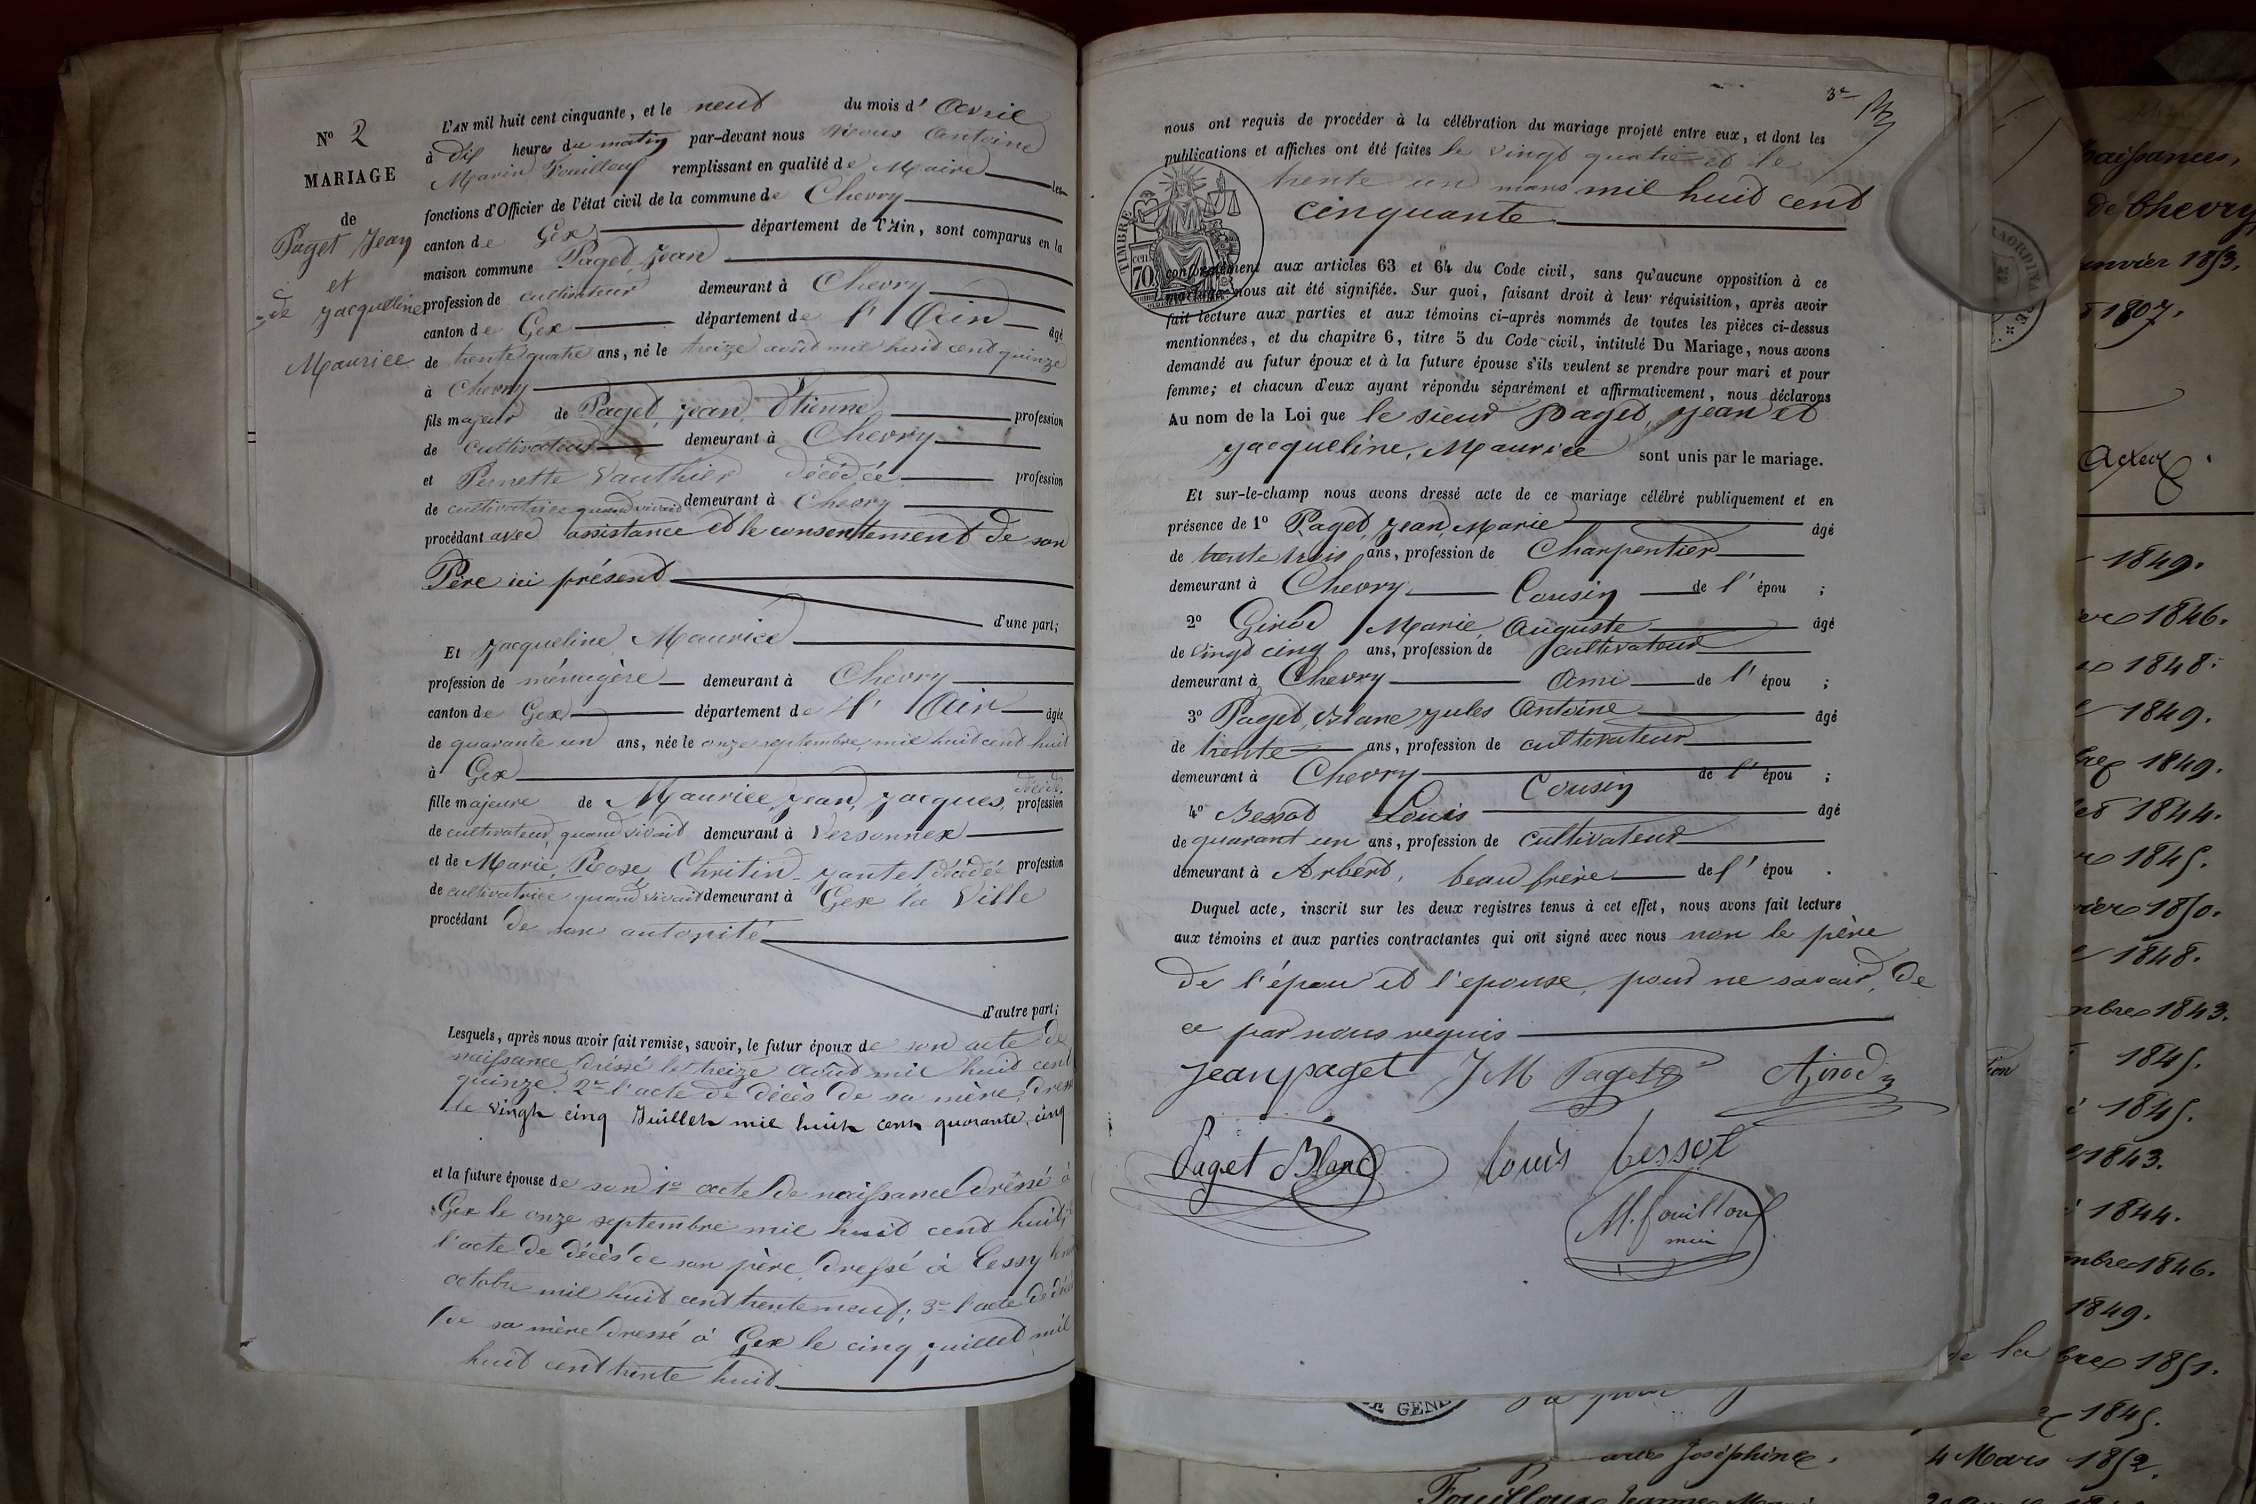 N° 2
MARIAGE
de
Paget Jean
et
de Jacqueline
Maurice
L'AN mil huit cent cinquante, et le neuf du mois d'Avril
à dix heures du matin par-devant nous Antoine
Marin Fouilloux remplissant en qualité de Maire les
fonctions d'Officier de l'état civil de la commune de Chevry
canton de Gex département de l'Ain, sont comparus en la
maison commune Paget, Jean
profession de cultivateur demeurant à Chevry
canton de Gex département de l'Ain âgé
de trente quatre ans, né le treize août mil huit cent quinze
à Chevry
fils majeur de Paget, Jean, Etienne profession
de cultivateur demeurant à Chevry
et Pernette Vauthier décédée profession
de cultivatrice quand vivait demeurant à Chevry
procédant avec assistance et le consentement de son
Père ici présent
d'une part;
Et Jacqueline, Maurice
profession de ménagère demeurant à Chevry
canton de Gex département de l'Ain âgée
de quarante un ans, née le onze septembre mil huit cent huit
à Gex
fille majeure de Maurice, Jean, Jacques, décédé profession
de cultivateur, quand vivait demeurant à Versonnex
et de Marie, Rose, Chritin-Jantet décédée profession
de cultivatrice quand vivait demeurant à Gex la Ville
procédant de son autorité
d'autre part;
Lesquels, après nous avoir fait remise, savoir, le futur époux de son acte de
naissance dréssé le treize août mil huit cent
quinze 2° l'acte de décès de sa mère, dressé
le vingt cinq Juillet mil huit cent quarante cinq
et la future épouse de son 1° acte de naissance dréssé à
Gex le onze septembre mil huit cent huit;
l'acte de décès de son père, dressé à Cessy
octobre mil huit cent trente neuf; 3° l'acte de décès
de sa mère dressé à Gex le cinq juillet mil
huit cent trente huit
3e
nous ont requis de procéder à la célébration du mariage projeté entre eux, et dont les
publications et affiches ont été faites le vingt quatre et le
trente un mars mil huit cent
cinquante
TIMBRE
cen
70
conformément aux articles 63 et 64 du Code civil, sans qu'aucune opposition à ce
mariage nous ait été signifiée. Sur quoi, faisant droit à leur réquisition, après avoir
fait lecture aux parties et aux témoins ci-après nommés de toutes les pièces ci-dessus
mentionnées, et du chapitre 6, titre 5 du Code civil, intitulé Du Mariage, nous avons
demandé au futur époux et à la future épouse s'ils veulent se prendre pour mari et pour
femme; et chacun d'eux ayant répondu séparément et affirmativement, nous déclarons
Au nom de la Loi que le sieur Paget, Jean et
Jacqueline, Maurice sont unis par le mariage.
Et sur-le-champ nous avons dressé acte de ce mariage célébré publiquement et en
présence de 1° Paget, Jean, Marie âgé
de trente trois ans, profession de Charpentier
demeurant à Chevry Cousin de l'épou ;
2° Girod Marie, Auguste âgé
de vingt cinq ans, profession de cultivateur
demeurant à Chevry Ami de l'épou ;
3° Paget, Blanc Jules Antoine âgé
de trente ans, profession de cultivateur
demeurant à Chevry Cousin de l'épou ;
4° Bessot Louis âgé
de quarant un ans, profession de cultivateur
demeurant à Arbert, beau frère de l'épou .
Duquel acte, inscrit sur les deux registres tenus à cet effet, nous avons fait lecture
aux témoins et aux parties contractantes qui ont signé avec nous non le père
de l'épou et l'epouse, pour ne savoir, de
ce par nous requis
Jean paget J M Paget AGirod
Paget Blanc louis bessot
M. fouilloux
maire
RAORDINAIRE
naissances,
de Chevry
Janvier 1853.
1807.
1849.
1846.
1848.
1849.
1849.
1844.
1845.
1850.
1848.
mbre 1843.
1845.
1845.
1843.
1844.
mbre 1846.
1849.
de la
bre 1851.
1845.
GENE
Joséphine. 4 Mars 1852.
Fouilloux Jeanne